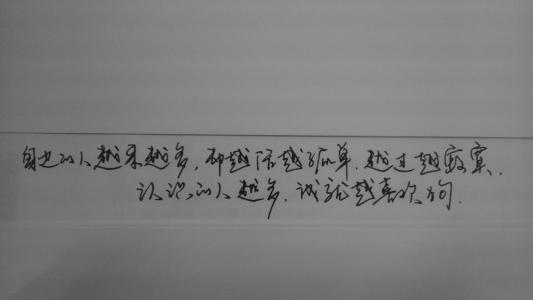 身边的人越来越多，却越活越孤单，越过越寂寞，
认识的人越多，我就越喜欢狗．